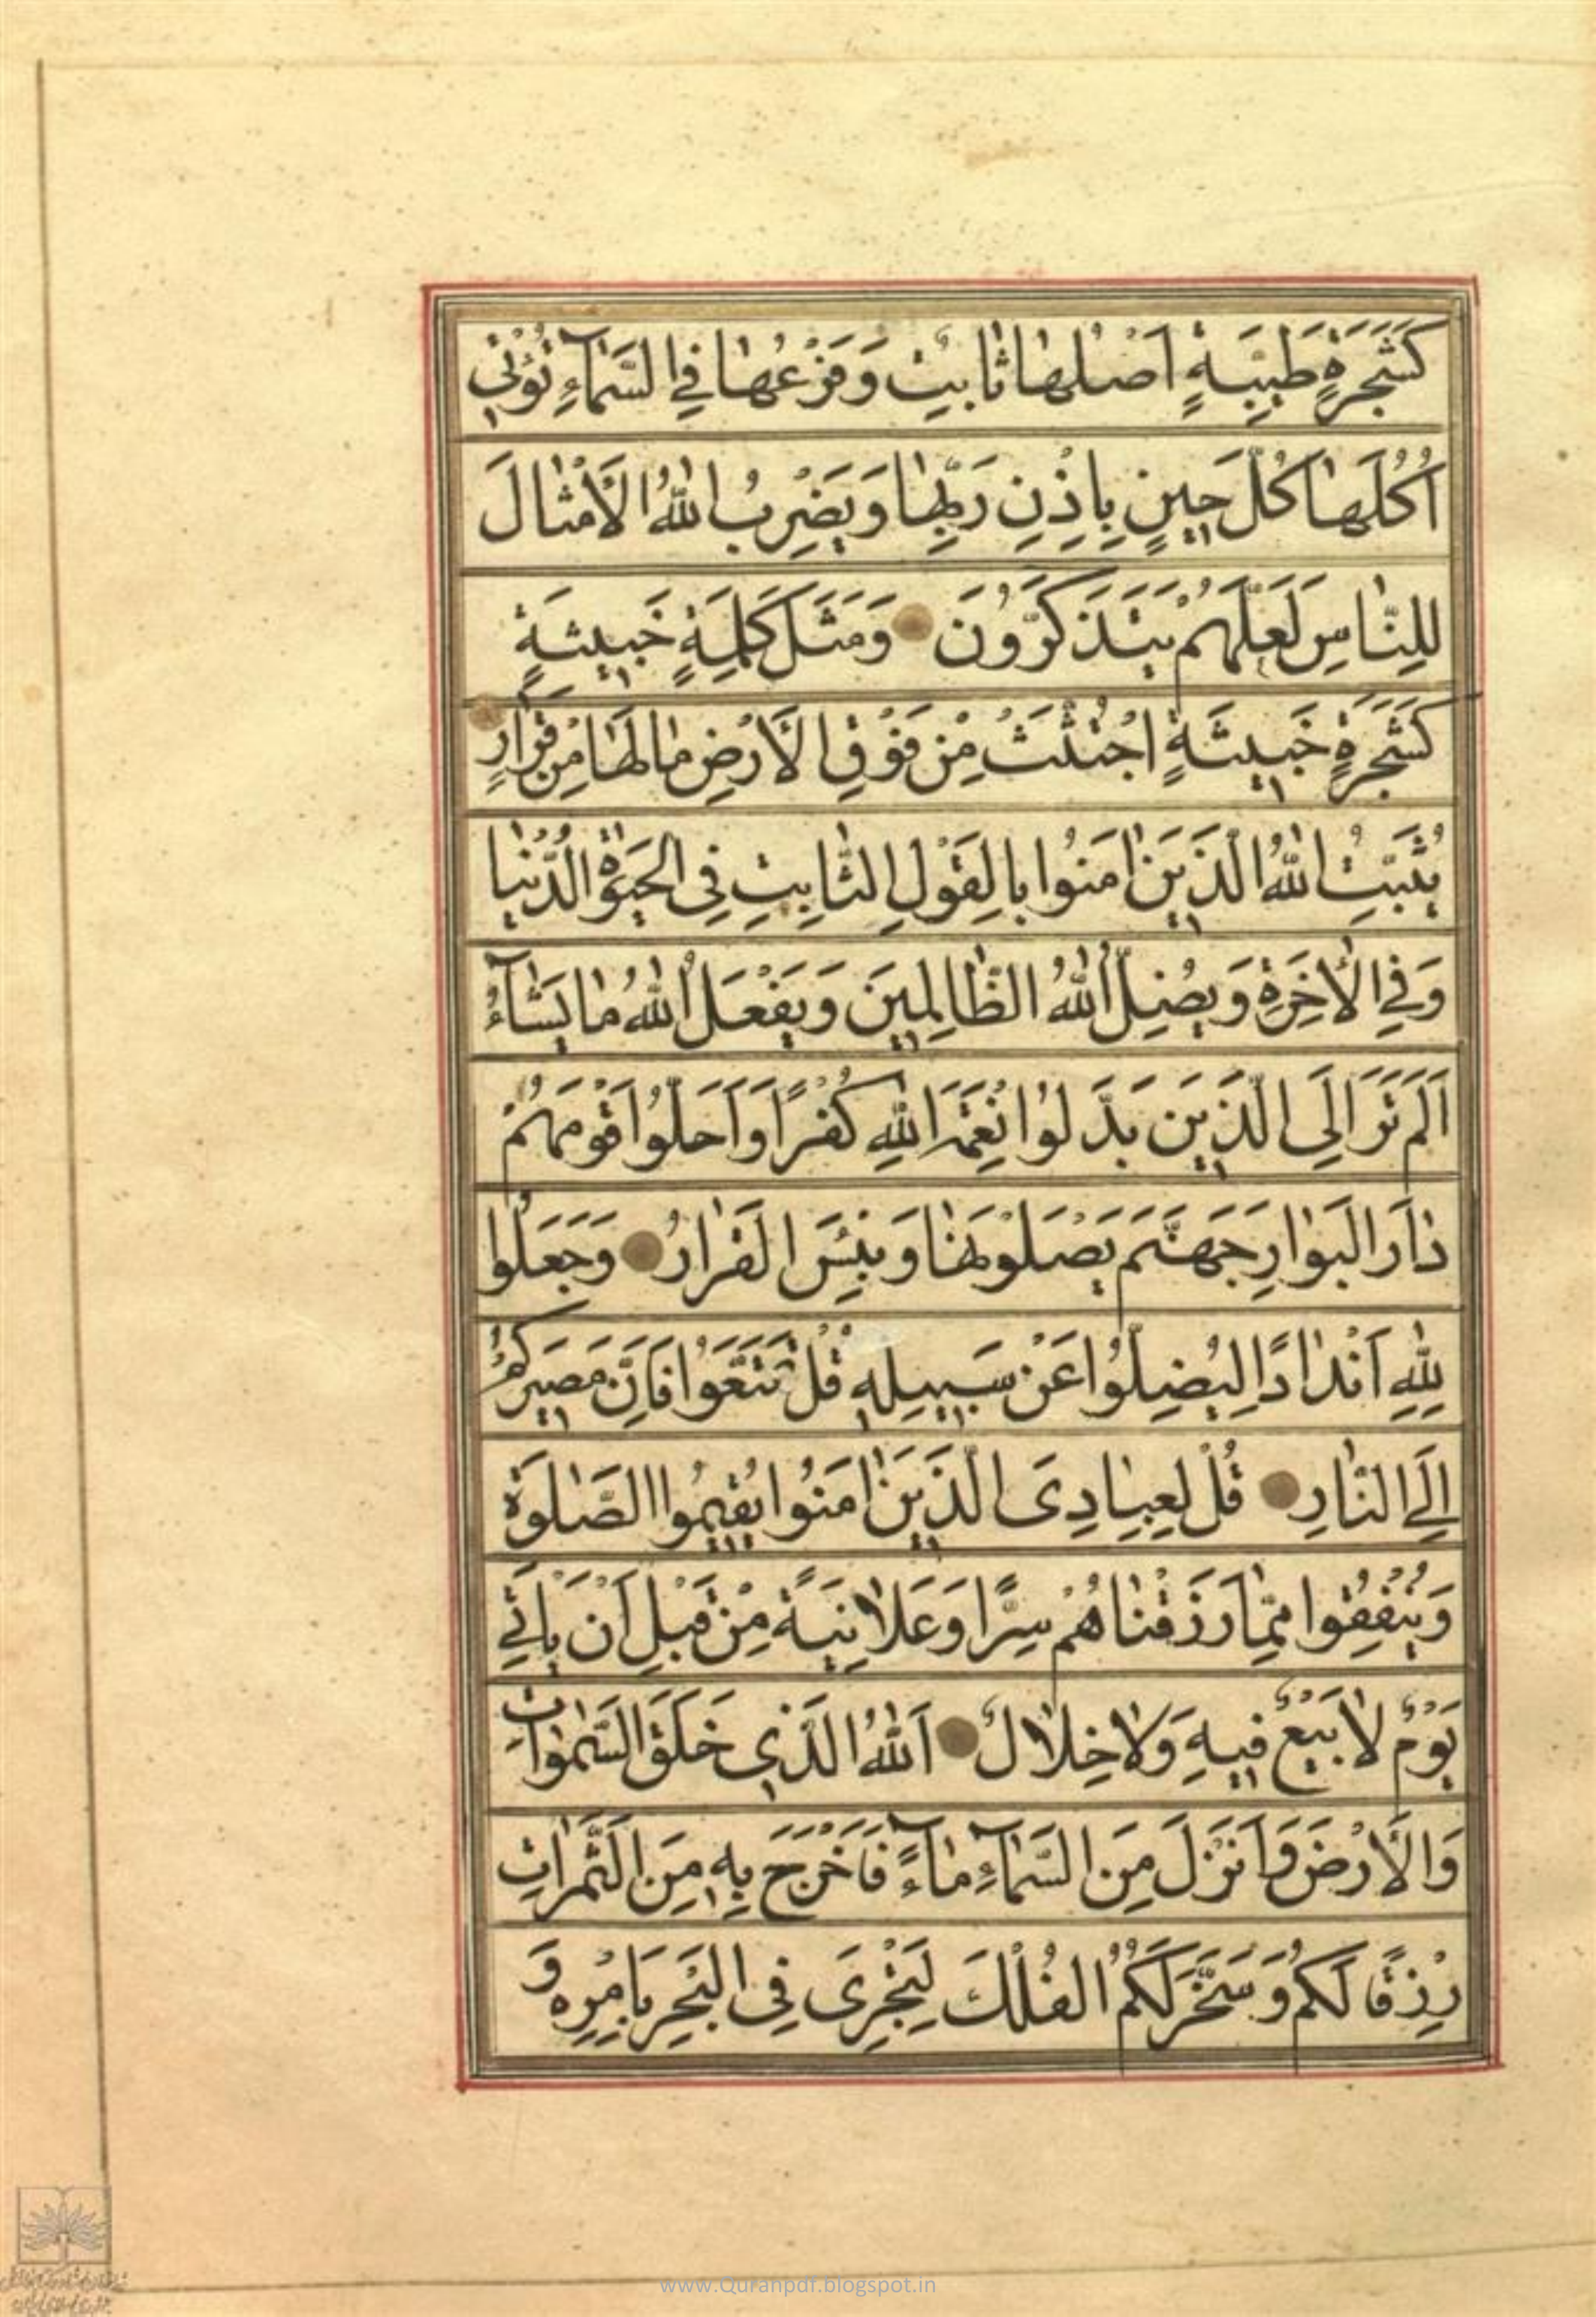 كَشَجَرَةٍ طَيِّبَةٍ اَصْلُها ثابِتٌ وَفَرْعُها فِي السَّمآءِ تُؤْتي
اُكُلَها كُلَّ حينٍ بِاِذْنِ رَبِّها وَيَضْرِبُ اللهُ الْاَمْثالَ
لِلنّاسِ لَعَلَّهُمْ يَتَذَكَّرُونَ وَمَثَلُ كَلِمَةٍ خَبيثَةٍ
كَشَجَرَةٍ خَبيثَةٍ اجْتُثَّتْ مِنْ فَوْقِ الْاَرْضِ مالَها مِنْ قَرارٍ
يُثَبِّتُ اللهُ الَّذينَ امَنُوا بِالْقَوْلِ الثّابِتِ فِى الْحَيوةِ الدُّنْيا
وَفِي الْاخِرَةِ وَيُضِلُّ اللهُ الظّالِمينَ وَيَفْعَلُ اللهُ ما يَشآءُ
اَلَمْ تَرَ اِلَى الَّذينَ بَدَّلُوا نِعْمَةَ اللهِ كُفْرًا وَاَحَلُّوا قَوْمَهُمْ
دارَ الْبَوارِ جَهَنَّمَ يَصْلَوْنَها وَبِئْسَ الْقَرارُ وَجَعَلُوا
لِلهِ اَنْدادًا لِيُضِلُّوا عَنْ سَبيلِه قُلْ تَمَتَّعُوا فَاِنَّ مَصيرَكُمْ
اِلَى النّارِ قُلْ لِعِبادِىَ الَّذينَ امَنُوا يُقيمُوا الصَّلوةَ
وَيُنْفِقُوا مِمّا رَزَقْناهُمْ سِرًّا وَعَلانِيَةً مِنْ قَبْلِ اَنْ يَاْتِيَ
يَوْمٌ لا بَيْعٌ فيهِ وَلا خِلالٌ اَللهُ الَّذي خَلَقَ السَّمواتِ
وَالْاَرْضَ وَاَنْزَلَ مِنَ السَّمآءِ مآءً فَاَخْرَجَ بِه مِنَ الثَّمَراتِ
رِزْقًا لَكُمْ وَسَخَّرَ لَكُمُ الْفُلْكَ لِتَجْرِىَ فِى الْبَحْرِ بِاَمْرِه وَ
www.Quranpdf.blogspot.in